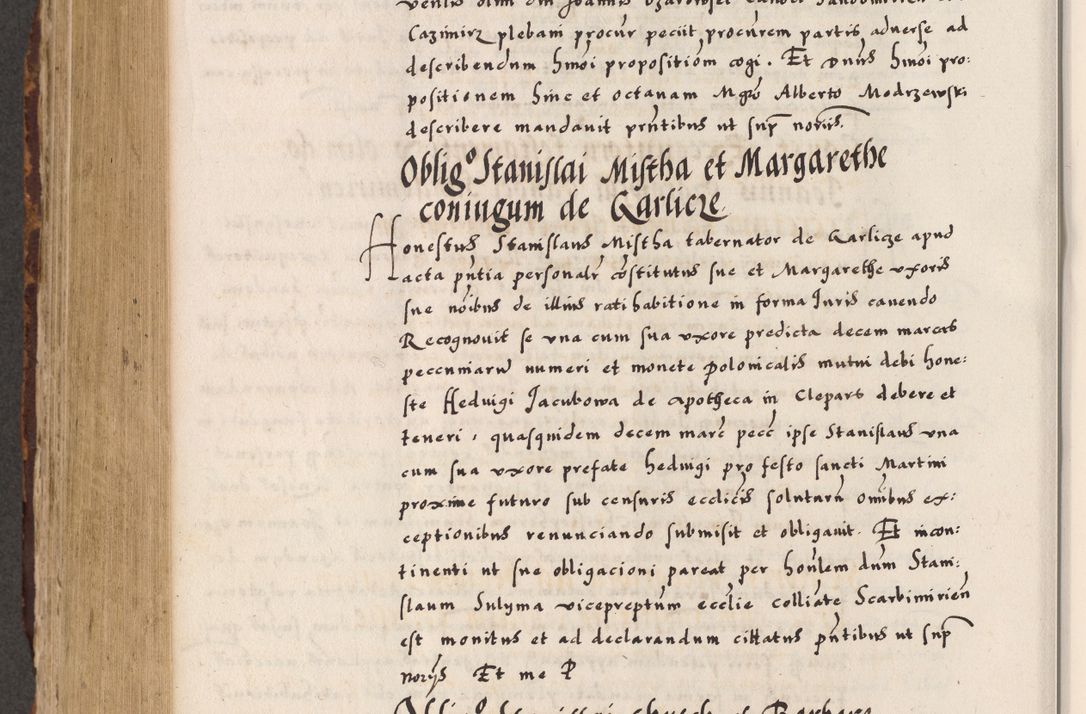 Cazimirz plebani procur peciit procurem partis adverse ad
describendum hmoi propositiom cogi. Et dnus hmoi pro:
positionem hinc et octanam Mgro Alberto Modrzewski
describere mandauit prntibus ut sup noriis.
Obligo Stanislai Mistha et Margarethe
coniugum de Garlicze
Honestus Stanislaus Mistha tabernator de Garlicze apud
acta pntia personalr constitutus sue et Margarethe uxoris
sue noibus de illius ratihabitione in forma Iuris cauendo
Recognouit se vna cum sua uxore predicta decem marcas
pecuniaru numeri et monete polonicalis mutui debi hone:
ste Heduigi Jacubowa de apotheca in Clepars debere et
teneri, quasquidem decem marc pecc ipse Stanislaus vna
cum sua uxore prefate heduigi pro festo sancti Martini
proxime futuro sub censuris ecclicis soluturu omibus ex:
ceptionibus renunciando submisit et obligauit. Et incon:
tinenti ut sue obligacioni pareat per honlem dum Stani:
slaum Sulyma vicepreptum ecclie colliate Scarbimirien
est monitus et ad declarandum cittatus pntibus ut sup
norijs Et me P